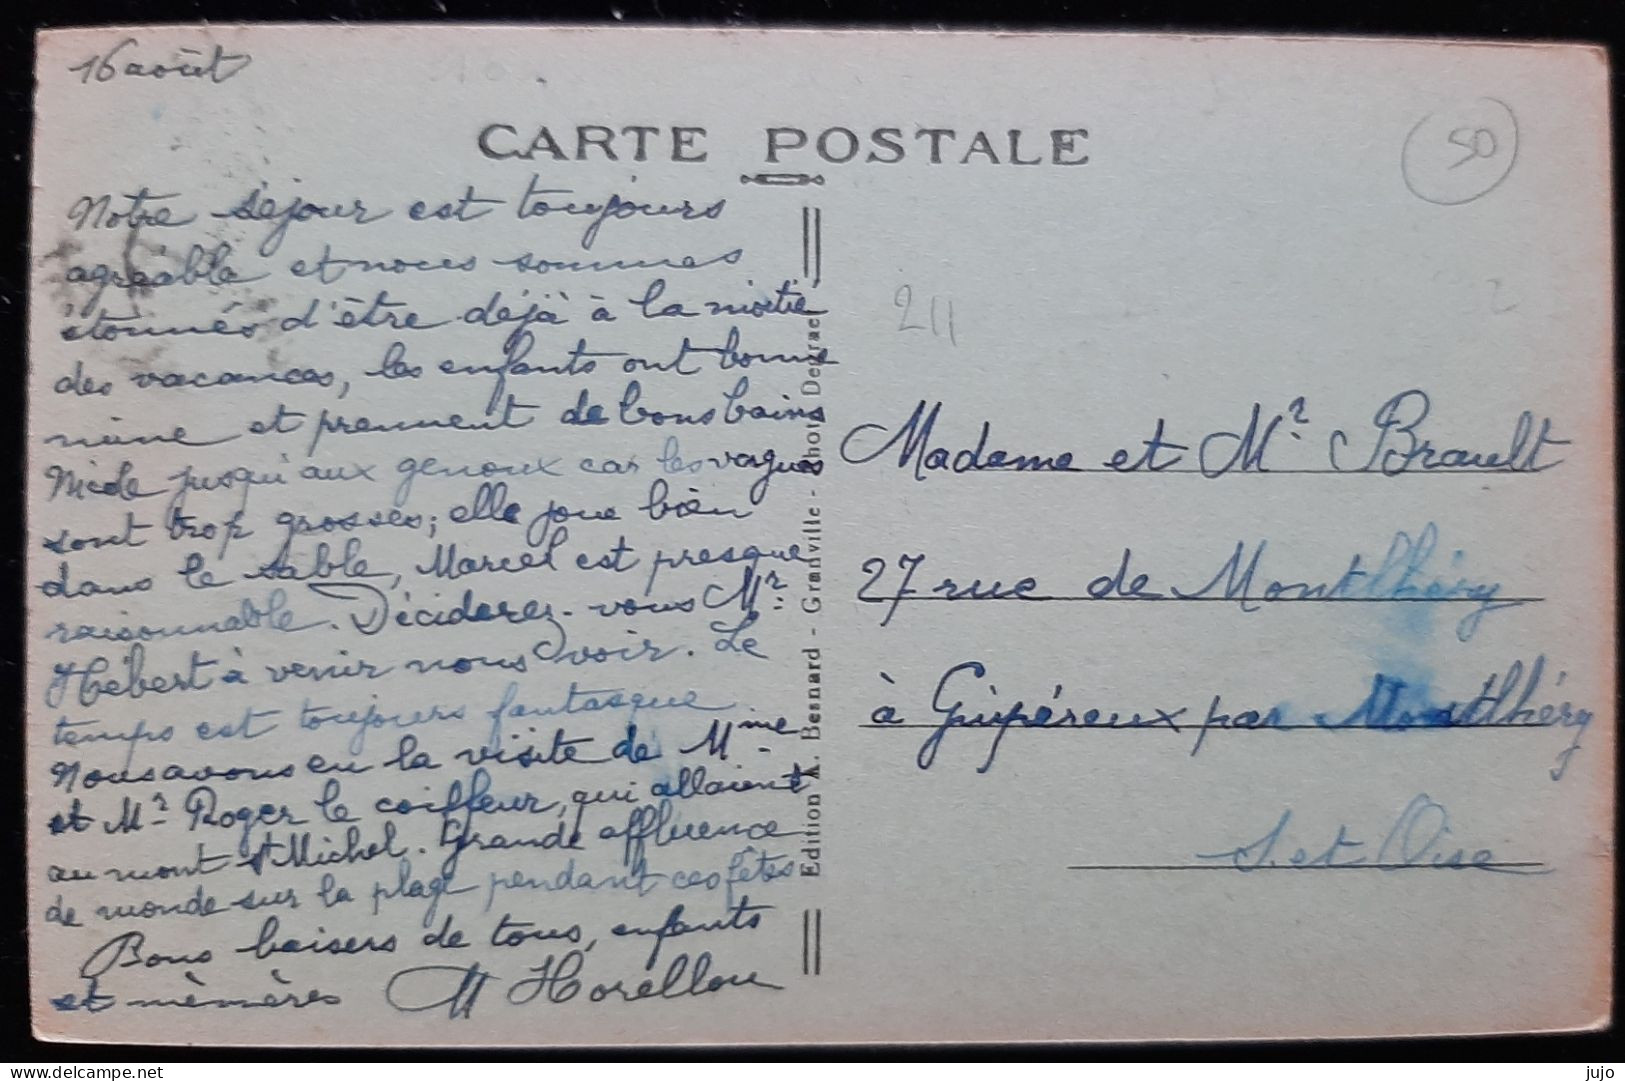 16 août
CARTE POSTALE
50
Notre séjour est toujours
agréable et nous sommes
étonnés d'être déjà à la moitié
des vacances, les enfants ont bonne
mine et prennent de bons bains
Nicole jusqu'aux genoux car les vagues
sont trop grosses; elle joue bien
dans le sable, Marcel est presque
raisonnable. Déciderez-vous Mr
Hébert à venir nous voir. Le
temps est toujours fantasque.
Nous avons eu la visite de Mme
et Mr Roger le coiffeur, qui allaient
au mont St Michel. Grande affluence
de monde sur la plage pendant ces fêtes
Bons baisers de tous, enfants
et mémères M Horellou
Edition A. Besnard - Granville - Phot.
211
Madame et Mr Brault
27 rue de Montlhéry
à Guipéreux par Montlhéry
S. et Oise
jujo